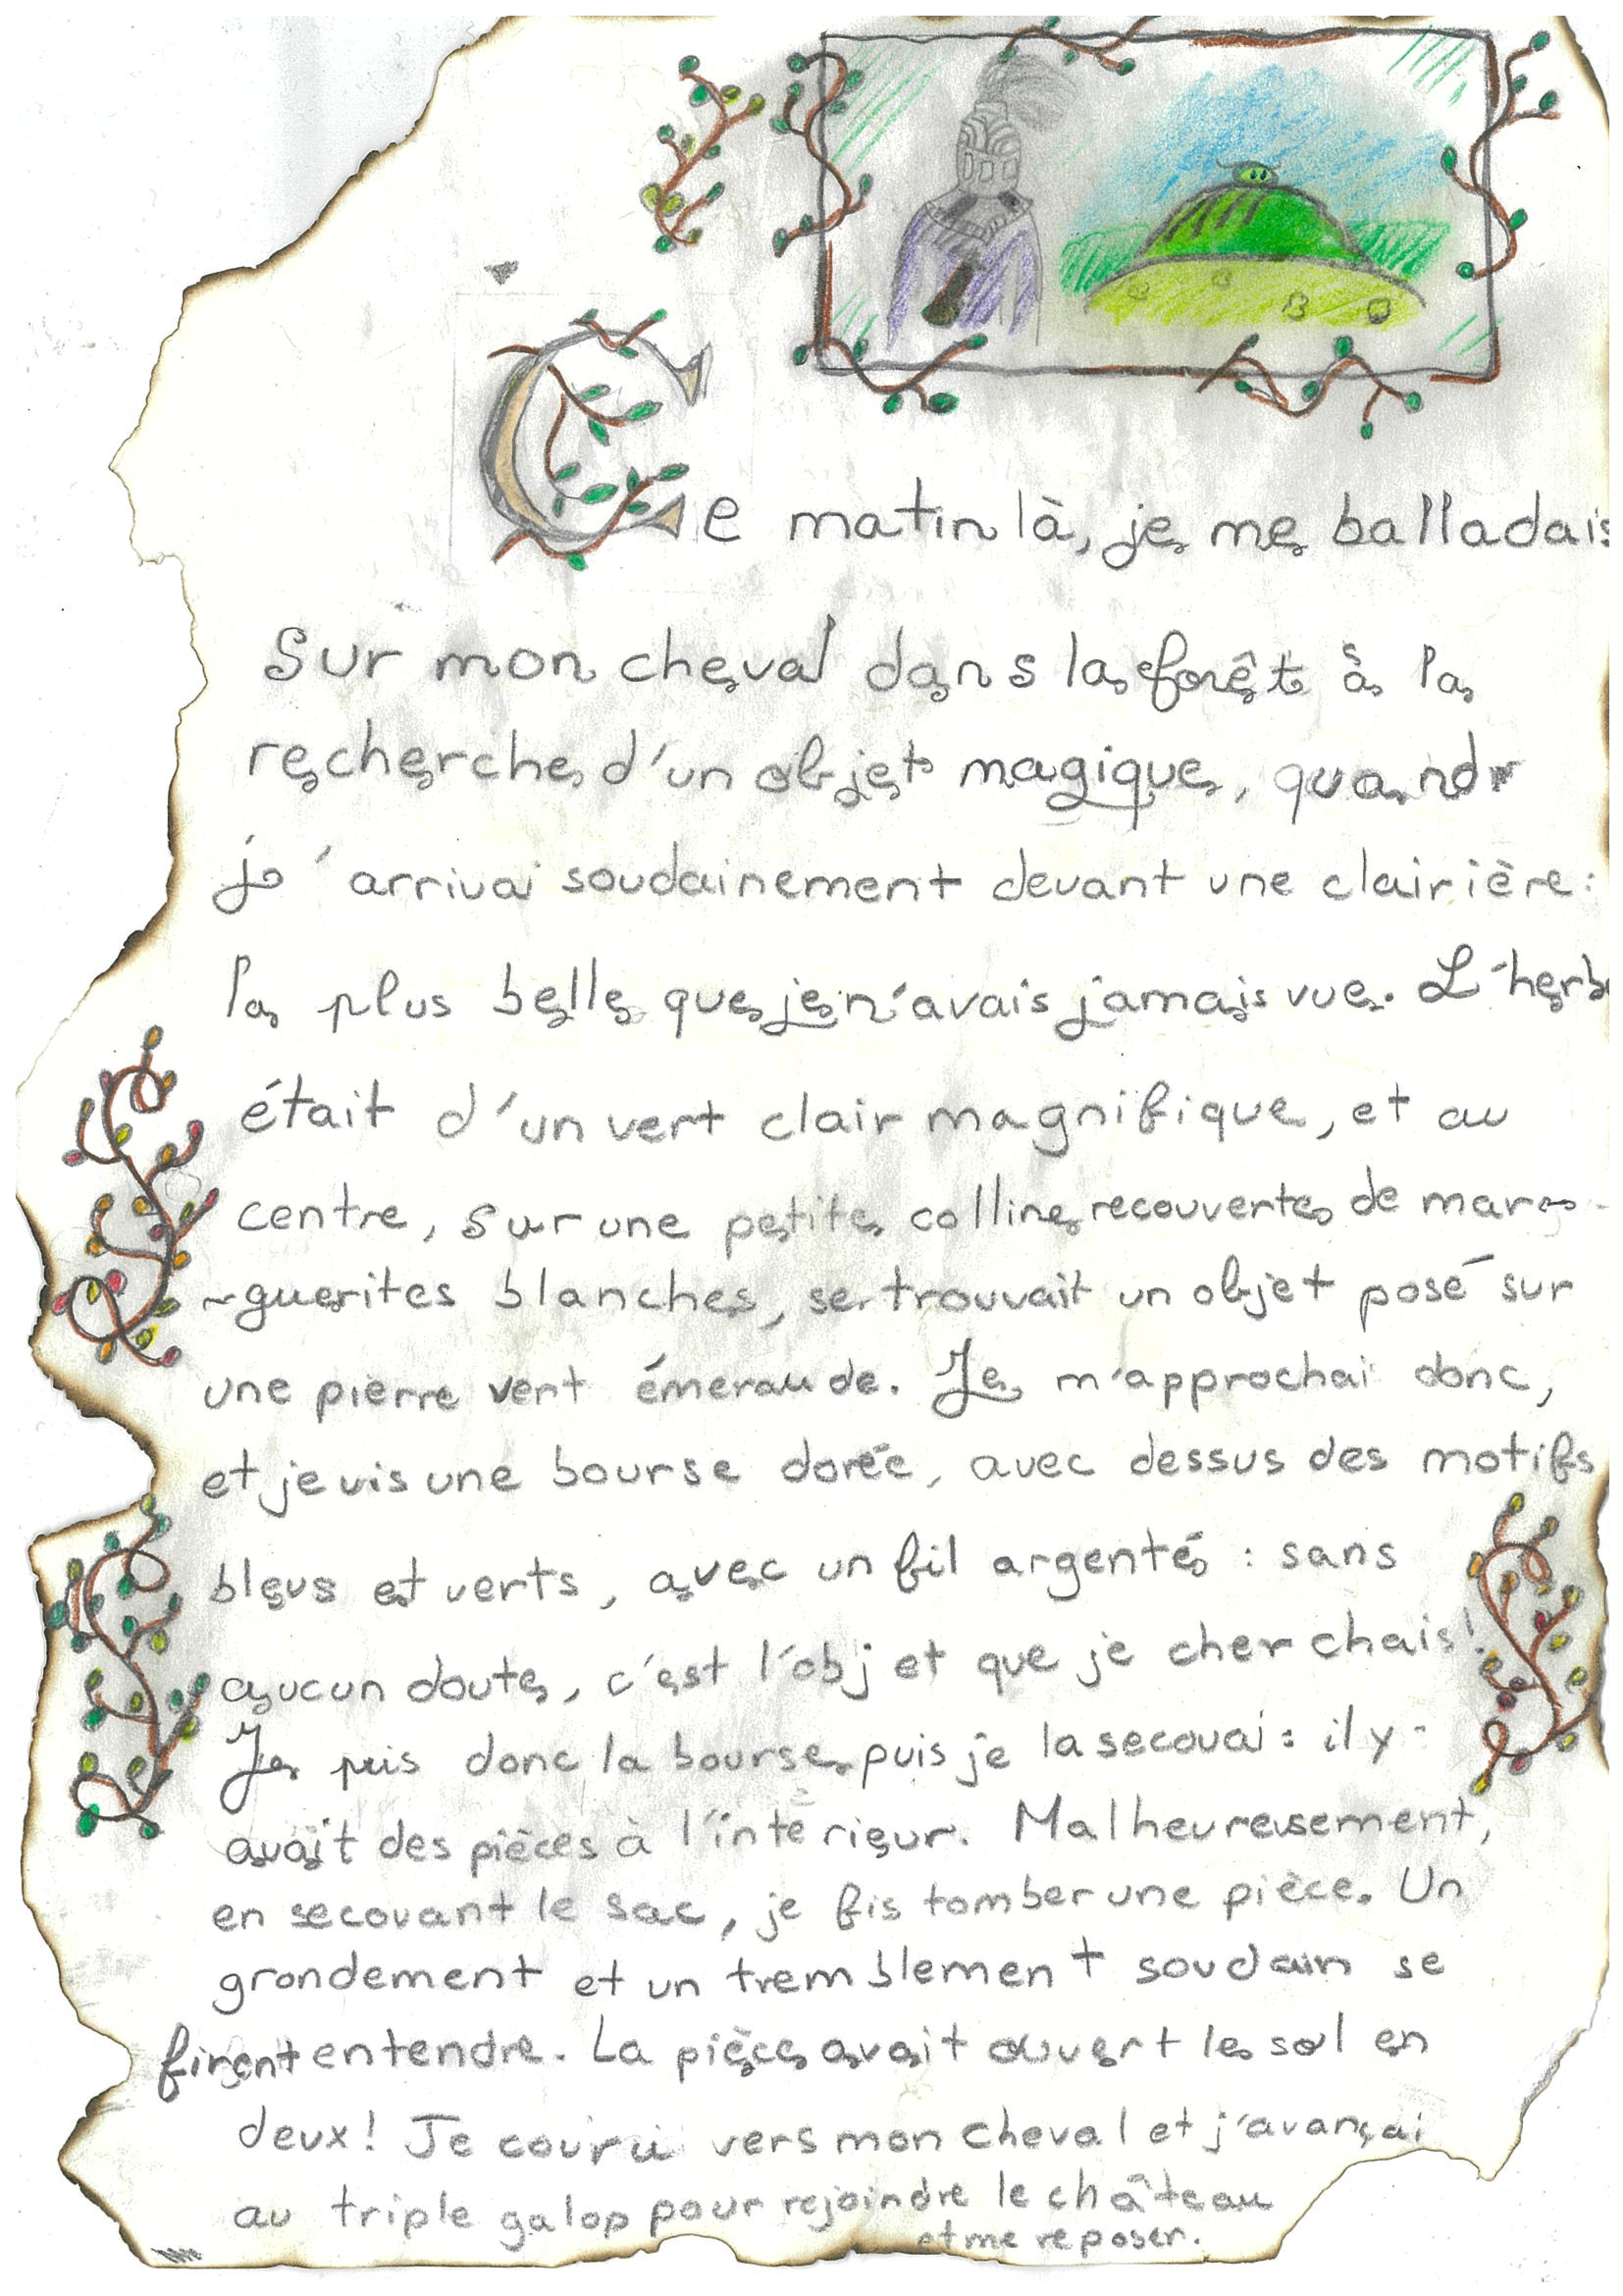 Ce matin là, je me balladais
Sur mon cheval dans la forêt à la
recherche d'un objet magique, quand
j'arrivai soudainement devant une clairière :
la plus belle que je n'avais jamais vue. L'herbe
était d'un vert clair magnifique, et au
centre, sur une petite colline recouverte de mar-
-guerites blanches, se trouvait un objet posé sur
une pierre vert émeraude. Je m'approchai donc,
et je vis une bourse dorée, avec dessus des motifs
bleus et verts, avec un fil argenté : sans
aucun doute, c'est l'objet que je cherchais !
Je pris donc la bourse puis je la secouai : il y
avait des pièces à l'intérieur. Malheureusement,
en secouant le sac, je fis tomber une pièce. Un
grondement et un tremblement soudain se
firent entendre. La pièce avait ouvert le sol en
deux ! Je couru vers mon cheval et j'avançai
au triple galop pour rejoindre le château
et me reposer.